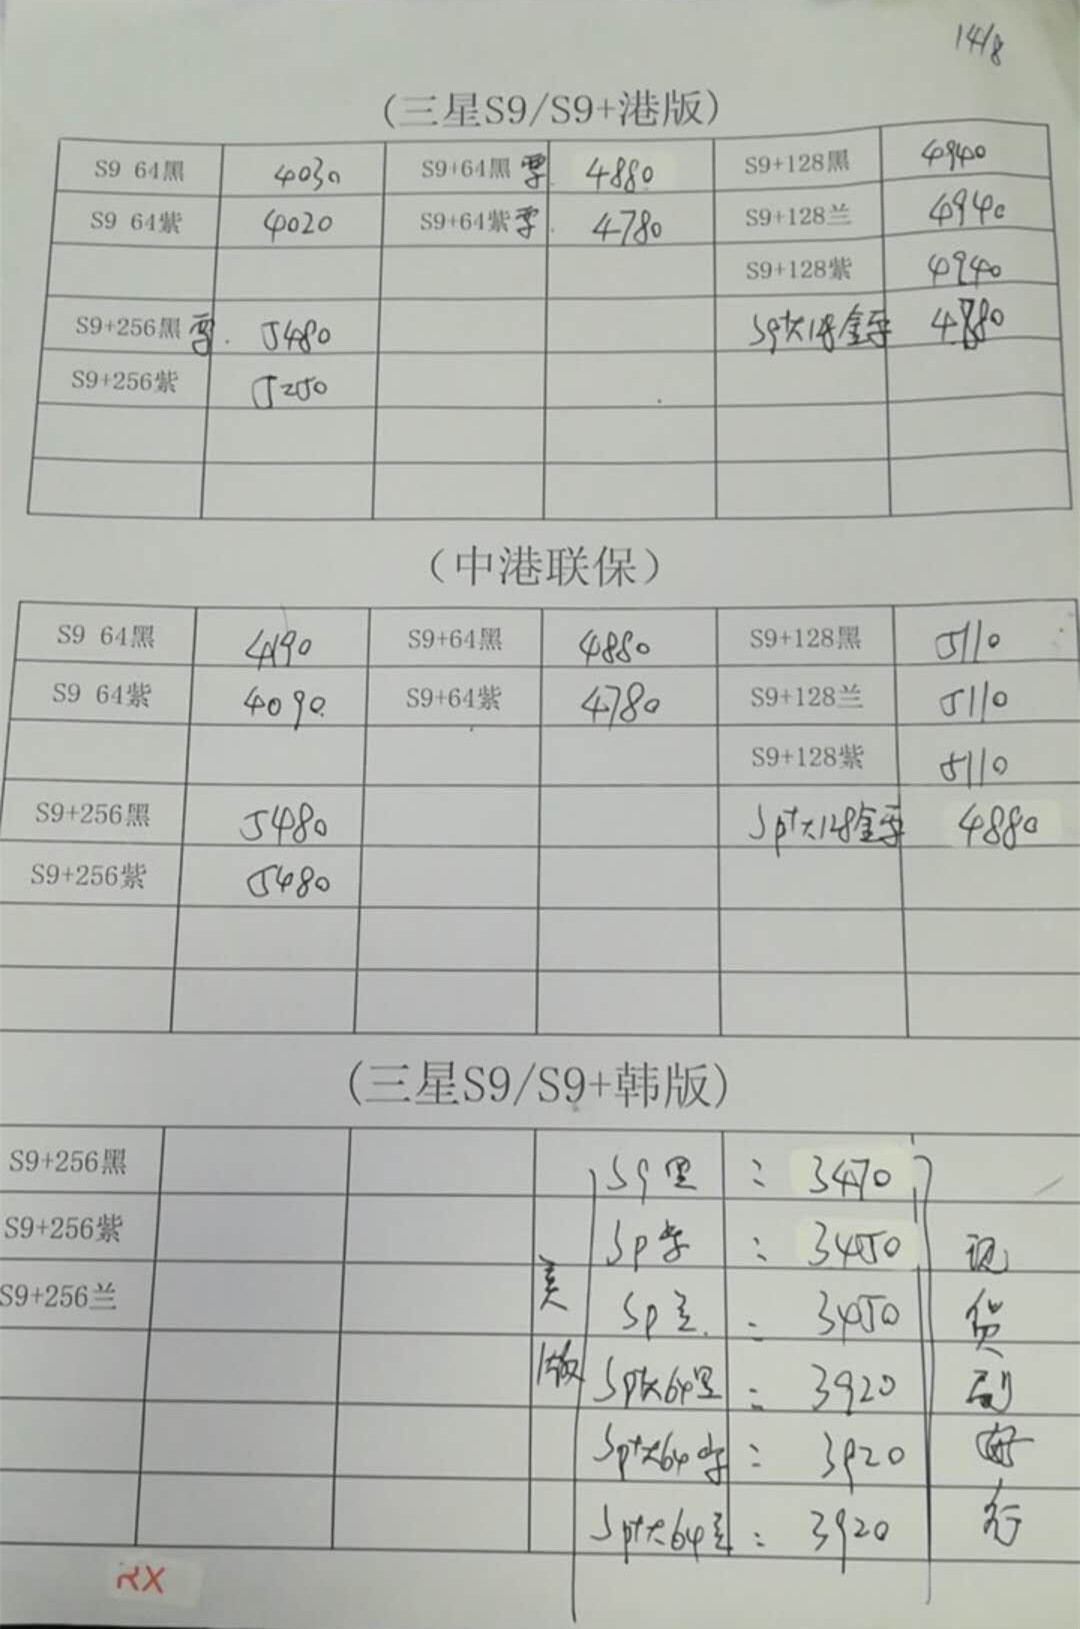 14/8
(三星S9/S9+港版)
S9 64黑 4030 S9+64黑 零. 4880 S9+128黑 4940
S9 64紫 4020 S9+64紫 零. 4780 S9+128兰 4940
S9+128紫 4940
S9+256黑 零. 5480 S9+大128金零 4880
S9+256紫 5250
(中港联保)
S9 64黑 4190 S9+64黑 4880 S9+128黑 5110
S9 64紫 4090 S9+64紫 4780 S9+128兰 5110
S9+128紫 5110
S9+256黑 5480 S9+大128金零 4880
S9+256紫 5480
(三星S9/S9+韩版)
S9+256黑 S9黑 = 3470
S9+256紫 S9 : 3450
S9+256兰 美版 S9兰 = 3450
S9+大64黑 = 3920
S9+大64 = 3920
S9+大64兰 : 3920
现货
行
RX